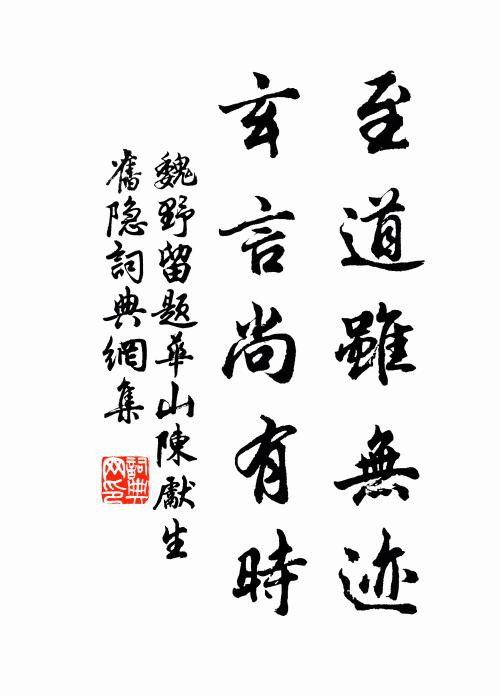 至道雖無迹
玄言尚有時
魏野留題華山陳獻生
舊隐詞典網集
詞典网印